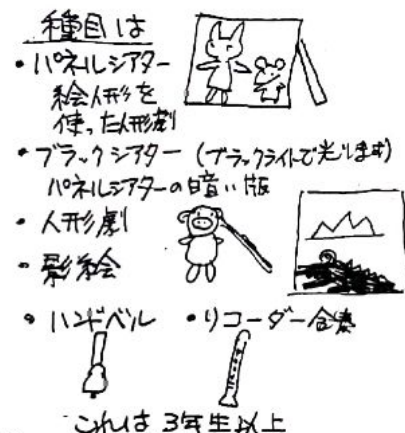 種目は
・パネルシアター
絵人形を
使った人形劇
・ブラックシアター(ブラックライトで光ります)
パネルシアターの暗い版
・人形劇
・影絵
・ハンドベル ・リコーダー合奏
これは3年生以上